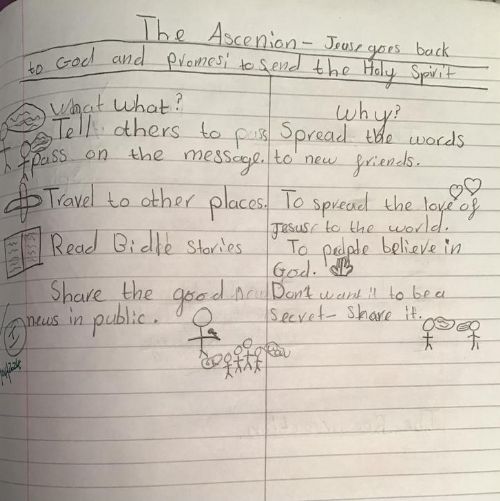 The Ascenion - Jeuse goes back
to God and promesi to send the Holy Spirit
What what?
Why?
Tell others to pass
pass on the message.
Spread the words
to new friends.
Travel to other places.
To spread the love of
Jesus to the world.
Read Bidle stories
To people believe in
God.
Share the good new
news in public.
Don't want it to be a
secret - Share it.